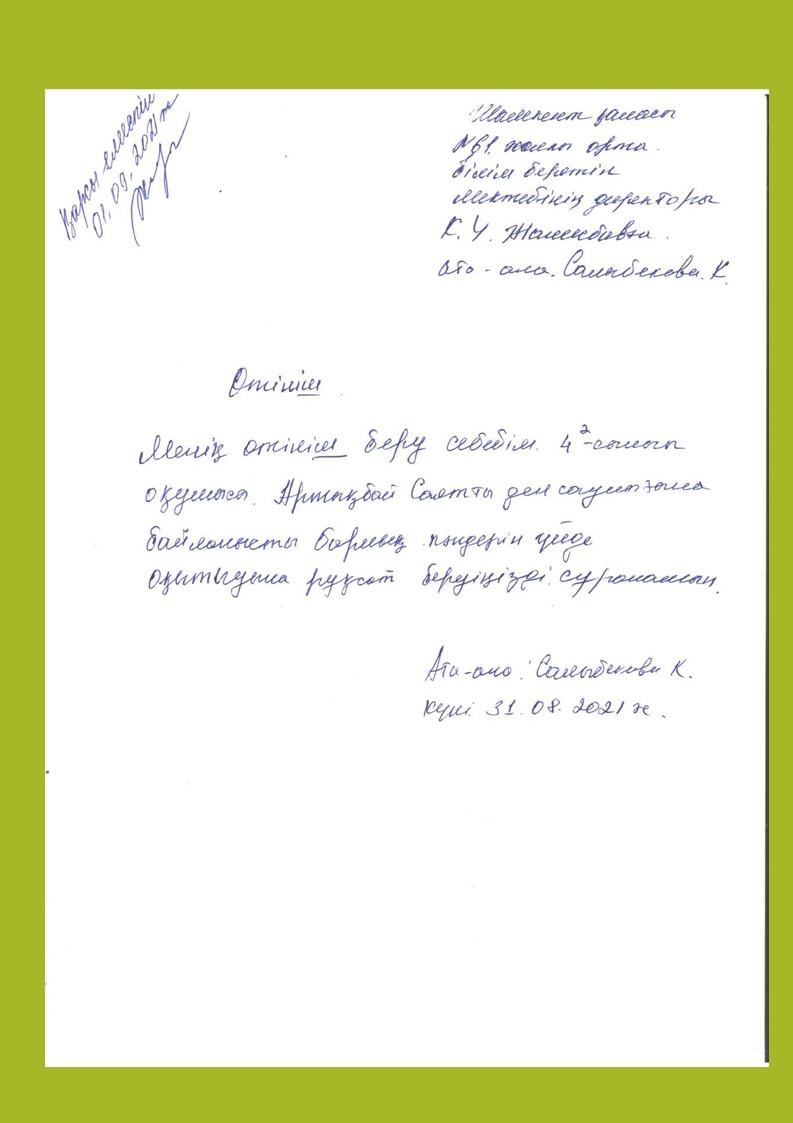 Қарсы емеспін
01.09.2021 ж
Шымкент қаласы
№61 жалпы орта
білім беретін
мектебінің директоры
К. Ч.
ата-ана. Салыбекова. К.
Өтініш
Менің өтініш беру себебім. 4²-сыныбы
оқушысы. Артықбай Саятты ден саулығына
байланысты барлық пәндерін үйде
оқытыдына рұқсат беруіңізді сұранамын.
Ата-ана: Салыбекова К.
күні. 31.08.2021 ж.